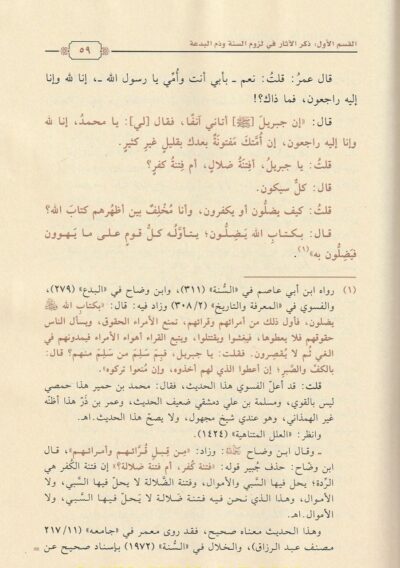 القسم الأول: ذكر الآثار في لزوم السنة وذم البدعة
٥٩
قال عمرُ: قلتُ: نعم ـ بأبي أنت وأُمِّي يا رسول الله ـ، إنا لله وإنا
إليه راجعون، فما ذاك؟!
قال: «إن جبريلَ [ﷺ] أتاني آنفًا، فقال [لي]: يا محمدُ، إنا لله
وإنا إليه راجعون، إن أُمَّتكَ مَفتونةٌ بعدك بقليلٍ غيرِ كثيرٍ.
قلتُ: يا جبريلُ، أفِتنَةُ ضلالٍ، أم فِتنةُ كفرٍ؟
قال: كلٌّ سيكون.
قلتُ: كيف يضلُّون أو يكفرون، وأنا مُخْلِفٌ بين أظهُرهم كتابَ الله؟
قال: بكتابِ الله يَضِلُّون؛ يتأوَّلُه كلُّ قومٍ على ما يَهوون
فيَضِلُّون به»(١).
(١) رواه ابن أبي عاصم في «السُّنة» (٣١١)، وابن وضاح في «البدع» (٢٧٩)،
والفسوي في «المعرفة والتاريخ» (٣٠٨/٢) وزاد فيه: قال: «بكتاب الله ﷺ
يضلون، فأول ذلك من أمرائهم وقرائهم، تمنع الأمراء الحقوق، ويسأل الناس
حقوقهم فلا يعطوها، فيغشوا ويقتتلوا، ويتبع القراء أهواء الأمراء فيمدونهم في
الغي ثُم لا يُقصِرون. فقلت: يا جبريل، فبِمَ سَلِمَ من سَلِمَ منهم؟ قال:
بالكفِّ والصَّبرِ؛ إن أعطوا الذي لهم أخذوه، وإن مُنعوا تركوه».
قلت: قد أعلَّ الفسوي هذا الحديث، فقال: محمد بن حمير هذا حمصي
ليس بالقوي، ومسلمة بن علي دمشقي ضعيف الحديث، وعمر بن ذَرٍّ هذا أظنّه
غير الهمداني، وهو عندي شيخ مجهول، ولا يصحّ هذا الحديث.اهـ.
وانظر: «العلل المتناهية» (١٤٢٤).
ـ وقال ابن وضاح: وزاد: «مِن قِبلِ قُرَّائهم وأمرائهم»، قال
ابن وضّاح: حذف جُبير قوله: «فتنة كُفر، أم فتنة ضلالة؟» إن فتنة الكُفر هي
الرِّدة؛ يحل فيها السَّبي والأموال، وفتنة الضَّلالة لا يحلّ فيها السَّبي، ولا
الأموال، وهذا الذي نحن فيه فتنة ضلالة لا يَحلّ فيها السَّبي، ولا
الأموال.اهـ.
وهذا الحديث معناه صحيح، فقد روى معمر في «جامعه» (٢١٧/١١
مصنف عبد الرزاق)، والخلال في «السُّنة» (١٩٧٢) بإسناد صحيح عن